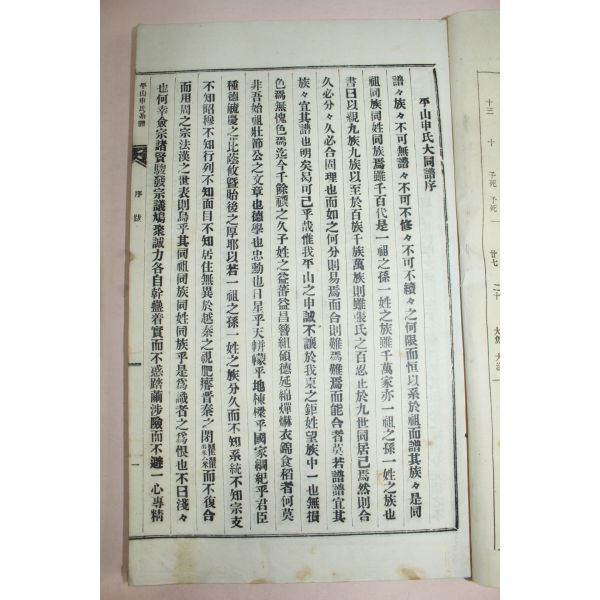 平山申氏大同譜序
譜々族々不可無譜々不可不修々不可不續々之何限而恒以系於祖而譜其族々是同
祖同族同姓同族焉雖千百代是一祖之孫一姓之族雖千萬家亦一祖之孫一姓之族也
書曰以親九族九族以至於百族千族萬族則雖張氏之百忍止於九世同居己焉然則合
久必分々久必合固理也而如之何分則易爲而合則難爲難爲而能合者莫若譜譜宜其
族々宜其譜也明矣曷可己乎哉惟我平山之申誠不讓於我東之鉅姓望族中一也無損
色焉無愧色焉迄今千餘禩之久子姓之益蕃益昌簪組碩德延綿燀爀衣錦食稻者何莫
非吾始祖壯節公之文章也德學也忠勳也日星乎天帡幪乎地棟樑乎國家綱紀乎君臣
種德毓慶之庇蔭攸曁貽後之厚耶以若一祖之孫一姓之族分久而不知系統不知宗支
不知昭穆不知行列不知面目不知居住無異於越秦之視肥瘠晋秦之閉而不復合
而用周之宗法漢之世表則烏乎其同祖同族同姓同族乎是爲識者之爲恨也不曰淺々
也何幸僉宗諸賢駿發宗議鳩聚誠力各自幹蠱着實而不惑踏繭涉險而不避一心專精
平山申氏系譜
序跋
一
十三
十
子死
子死
廿七
二十